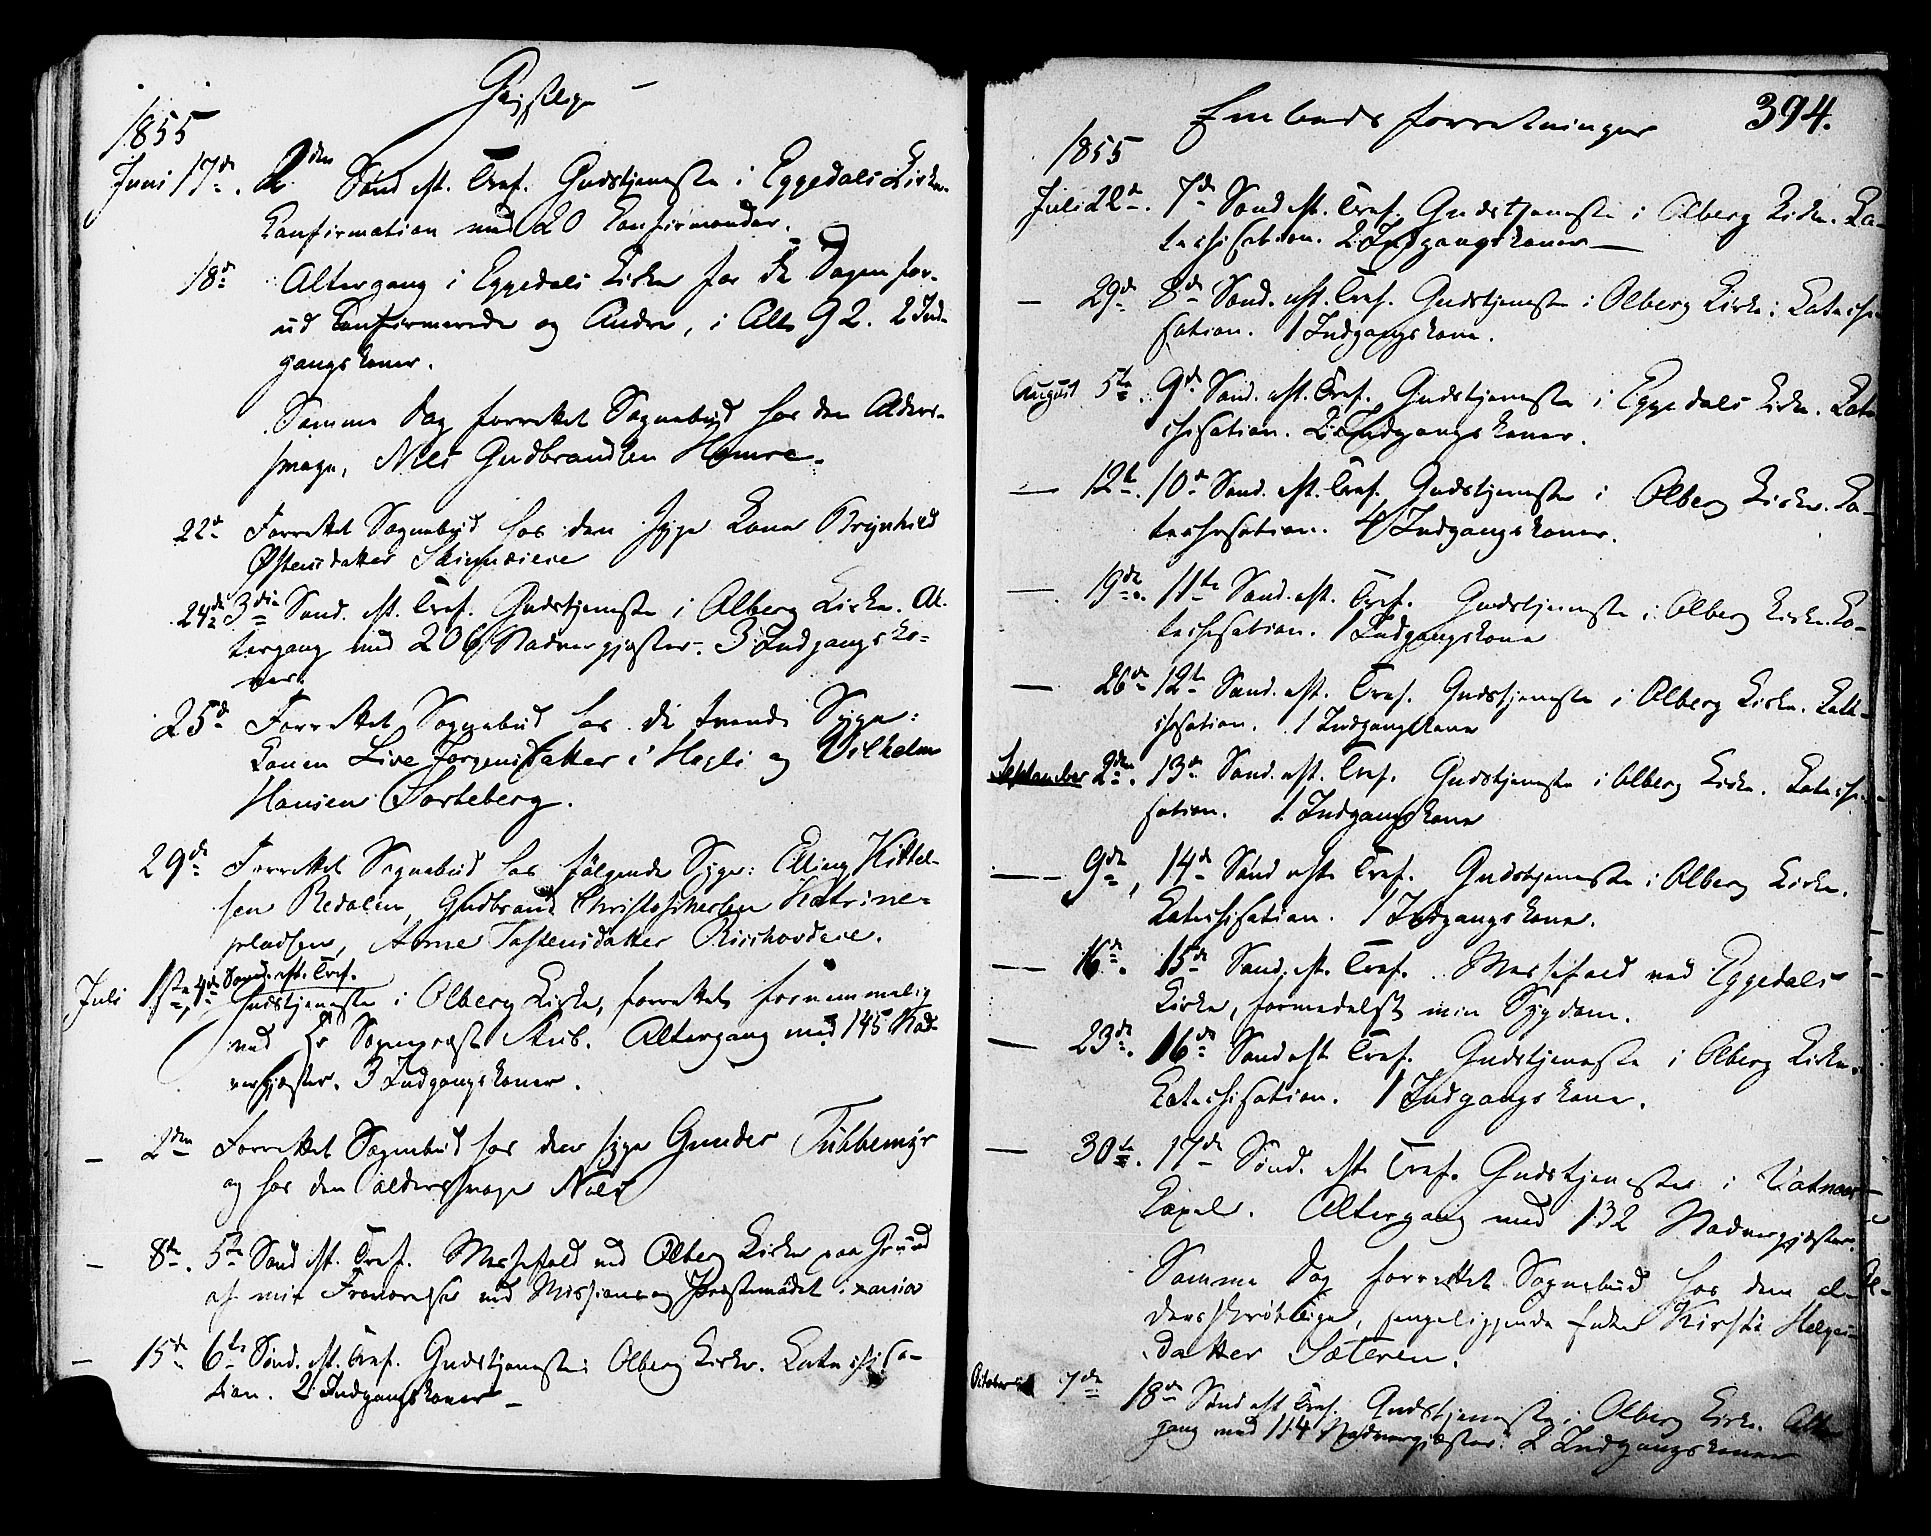 Gejstlige
1855
Juni 17de. 2den Sønd. eft. Tref. Gudstjeneste i Eggedals Kirke.
Confirmation med 20 Confirmander.
18de Altergang i Eggedals Kirke for de Dagen for-
ud Confirmerede og Andre, i Alt 92. 2 Ind-
gangskoner.
Samme Dag forrettet Sognebud hos den Alders-
svage, Niels Gudbrandsen Hamre.
22de Forrettet Sognebud hos den syge Kone Brynhild
Østensdatter
24de 3die Sønd. eft. Tref. Gudstjeneste i Olberg Kirke. Al-
tergang med 206 Nadvergjæster. 3 Indgangsko-
ner.
25de Forrettet Sognebud hos de tvende Syge:
Konen Live Jørgensdatter i Hagli og Vilhelm
Hansen Sorteberg.
29de Forrettet Sognebud hos følgende Syge: Elling Kittel-
sen Redalen, Gudbrand Christophersen Katrine-
pladsen, Anne Tostensdatter
Juli 1ste, 4de Sønd. eft. Tref.
Gudstjeneste i Olberg Kirke, forrettet fornemmelig
ved Hr Sognepræst Aub. Altergang med 145 Nad-
vergjæster. 3 Indgangskoner.
— 2den Forrettet Sognebud hos den syge Gunder Tubbemyr
og hos den aldersvage Niels
— 8de. 5te Sønd. eft. Tref. Messefald ved Olberg Kirke paa Grund
af min Fraværelse ved Missions og Præstemødet i xania
— 15de 6te Sønd. eft. Tref. Gudstjeneste i Olberg Kirke. Catechisa-
tion. 2 Indgangskoner —
Embeds forretninger 394.
1855
Juli 22de. 7de Sønd. eft. Tref. Gudstjeneste i Olberg Kirke. Ca-
techisation. 2 Indgangskoner —
— 29de 8de Sønd. eft. Tref. Gudstjeneste i Olberg Kirke. Catechi-
sation. 1 Indgangskone.
August 5te. 9de Sønd. eft. Tref. Gudstjeneste i Eggedals Kirke. Cate
chisation. 2 Indgangskoner.
— 12te. 10de Sønd. eft. Tref. Gudstjeneste i Olberg Kirke. Ca-
techisation. 4 Indgangskoner.
— 19de. 11te Sønd. eft. Tref. Gudstjeneste i Olberg Kirke. Ca-
techisation. 1 Indgangskone
— 26de 12te Sønd. eft. Tref. Gudstjeneste i Olberg Kirke. Cate-
chisation. 1 Indgangskone
September 2den. 13de Sønd. eft. Tref. Gudstjeneste i Olberg Kirke. Catechi-
sation. 1 Indgangskone
— 9de, 14de Sønd eft. Tref. Gudstjeneste i Olberg Kirke.
Catechisation. 1 Indgangskone.
— 16de. 15de Sønd. eft. Tref. Messefald ved Eggedals
Kirke, formedelst min Sygdom.
— 23de. 16de Sønd eft. Tref. Gudstjeneste i Olberg Kirke.
Catechisation. 1 Indgangskone.
— 30te. 17de Sønd. eft. Tref. Gudstjeneste i Vatnaas
Capel. Altergang med 132 Nadvergjæster.
Samme Dag forrettet Sognebud hos den al-
dersskrøbelige, sengeliggende Enke Kirsti Helges-
datter Sæteren.
October 7de 18de Sønd eft Tref. Gudstjeneste i Olberg Kirke. Alter
gang med 114 Nadvergjæster. 2 Indgangskoner